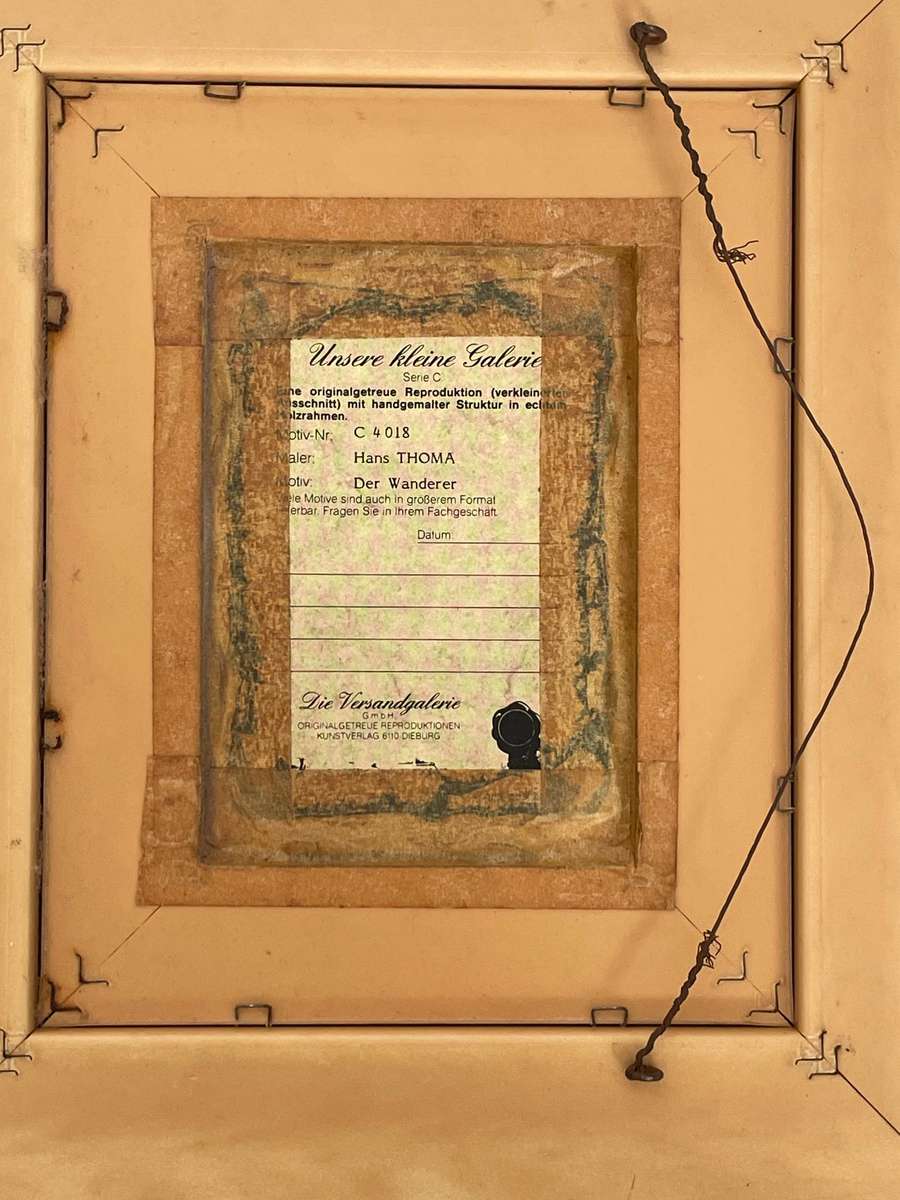 Unsere kleine Galerie
Serie C
Eine originalgetreue Reproduktion (verkleinerter
Ausschnitt) mit handgemalter Struktur in echtem
Holzrahmen.
Motiv-Nr.: C 4018
Maler: Hans THOMA
Motiv: Der Wanderer
Viele Motive sind auch in größerem Format
lieferbar. Fragen Sie in Ihrem Fachgeschäft.
Datum:
Die Versandgalerie
GmbH
ORIGINALGETREUE REPRODUKTIONEN
KUNSTVERLAG 6110 DIEBURG